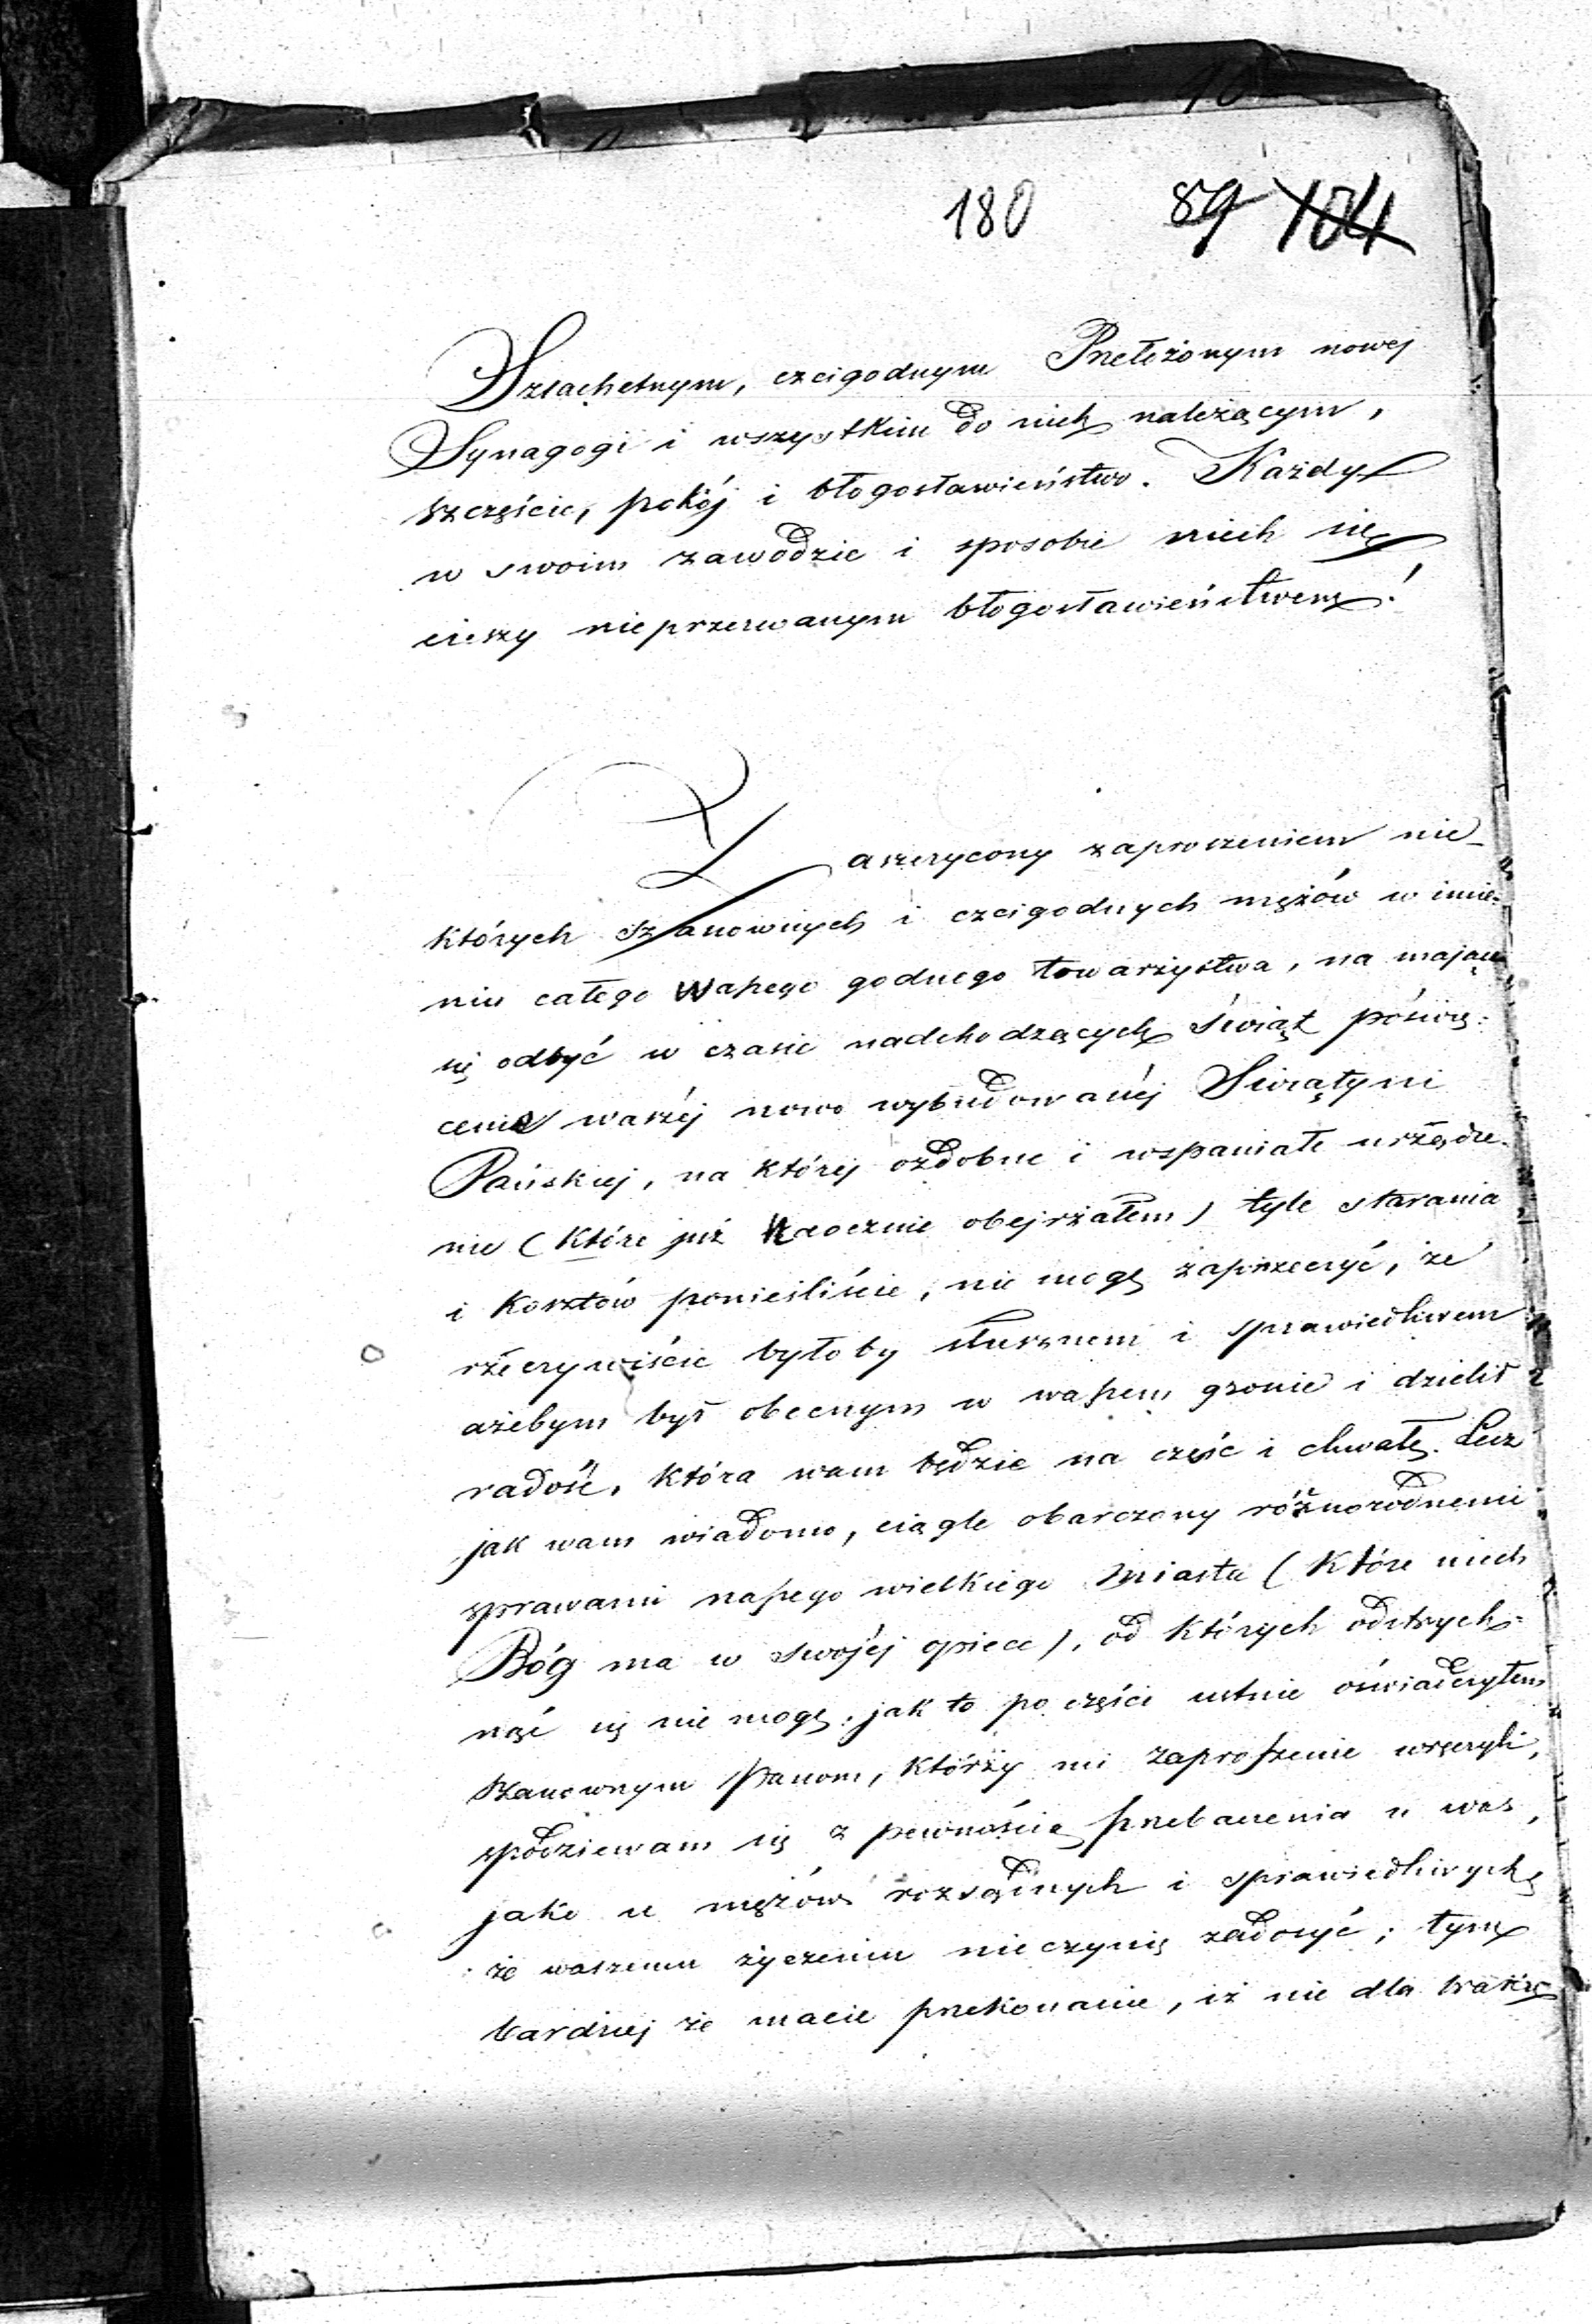 180 89 104
Szlachetnym, czcigodnym Przełożonym nowej
Synagogi i wszystkim do nich należącym,
szczęście, pokój i błogosławieństwo. Każdy
w swoim zawodzie i sposobie niech się
cieszy nieprzerwanym błogosławieństwem!
Zaszczycony zaproszeniem nie-
których szanownych i czcigodnych mężów w imie-
niu całego Waszego godnego towarzystwa, na mające
się odbyć w czasie nadchodzących Świąt poświę-
cenie waszéj nowo wybudowanéj Świątyni
Pańskiej, na której ozdobne i wspaniałe urządze-
nie (które już naocznie obejrzałem) tyle starania
i kosztów ponieśliście, nie mogę zaprzeczyć, że
rzeczywiście byłoby słusznem i sprawiedliwem
ażebym był obecnym w waszem gronie i dzielił
radość, która wam będzie na cześć i chwałę. Lecz
jak wam wiadomo, ciągle obarczony różnorodnemi
sprawami naszego wielkiego miasta (które niech
Bóg ma w swojéj opiece), od których odetrych-
nąć się nie mogę; jak to po części ustnie oświadczyłem
szanownym Panom, którzy mi zaproszenie wręczyli,
spodziewam się z pewnością przebaczenia u was,
jako u mężów rozsądnych i sprawiedliwych,
że waszemu życzeniu nie czynię zadosyć; tym
bardziej że macie przekonanie, iż nie dla